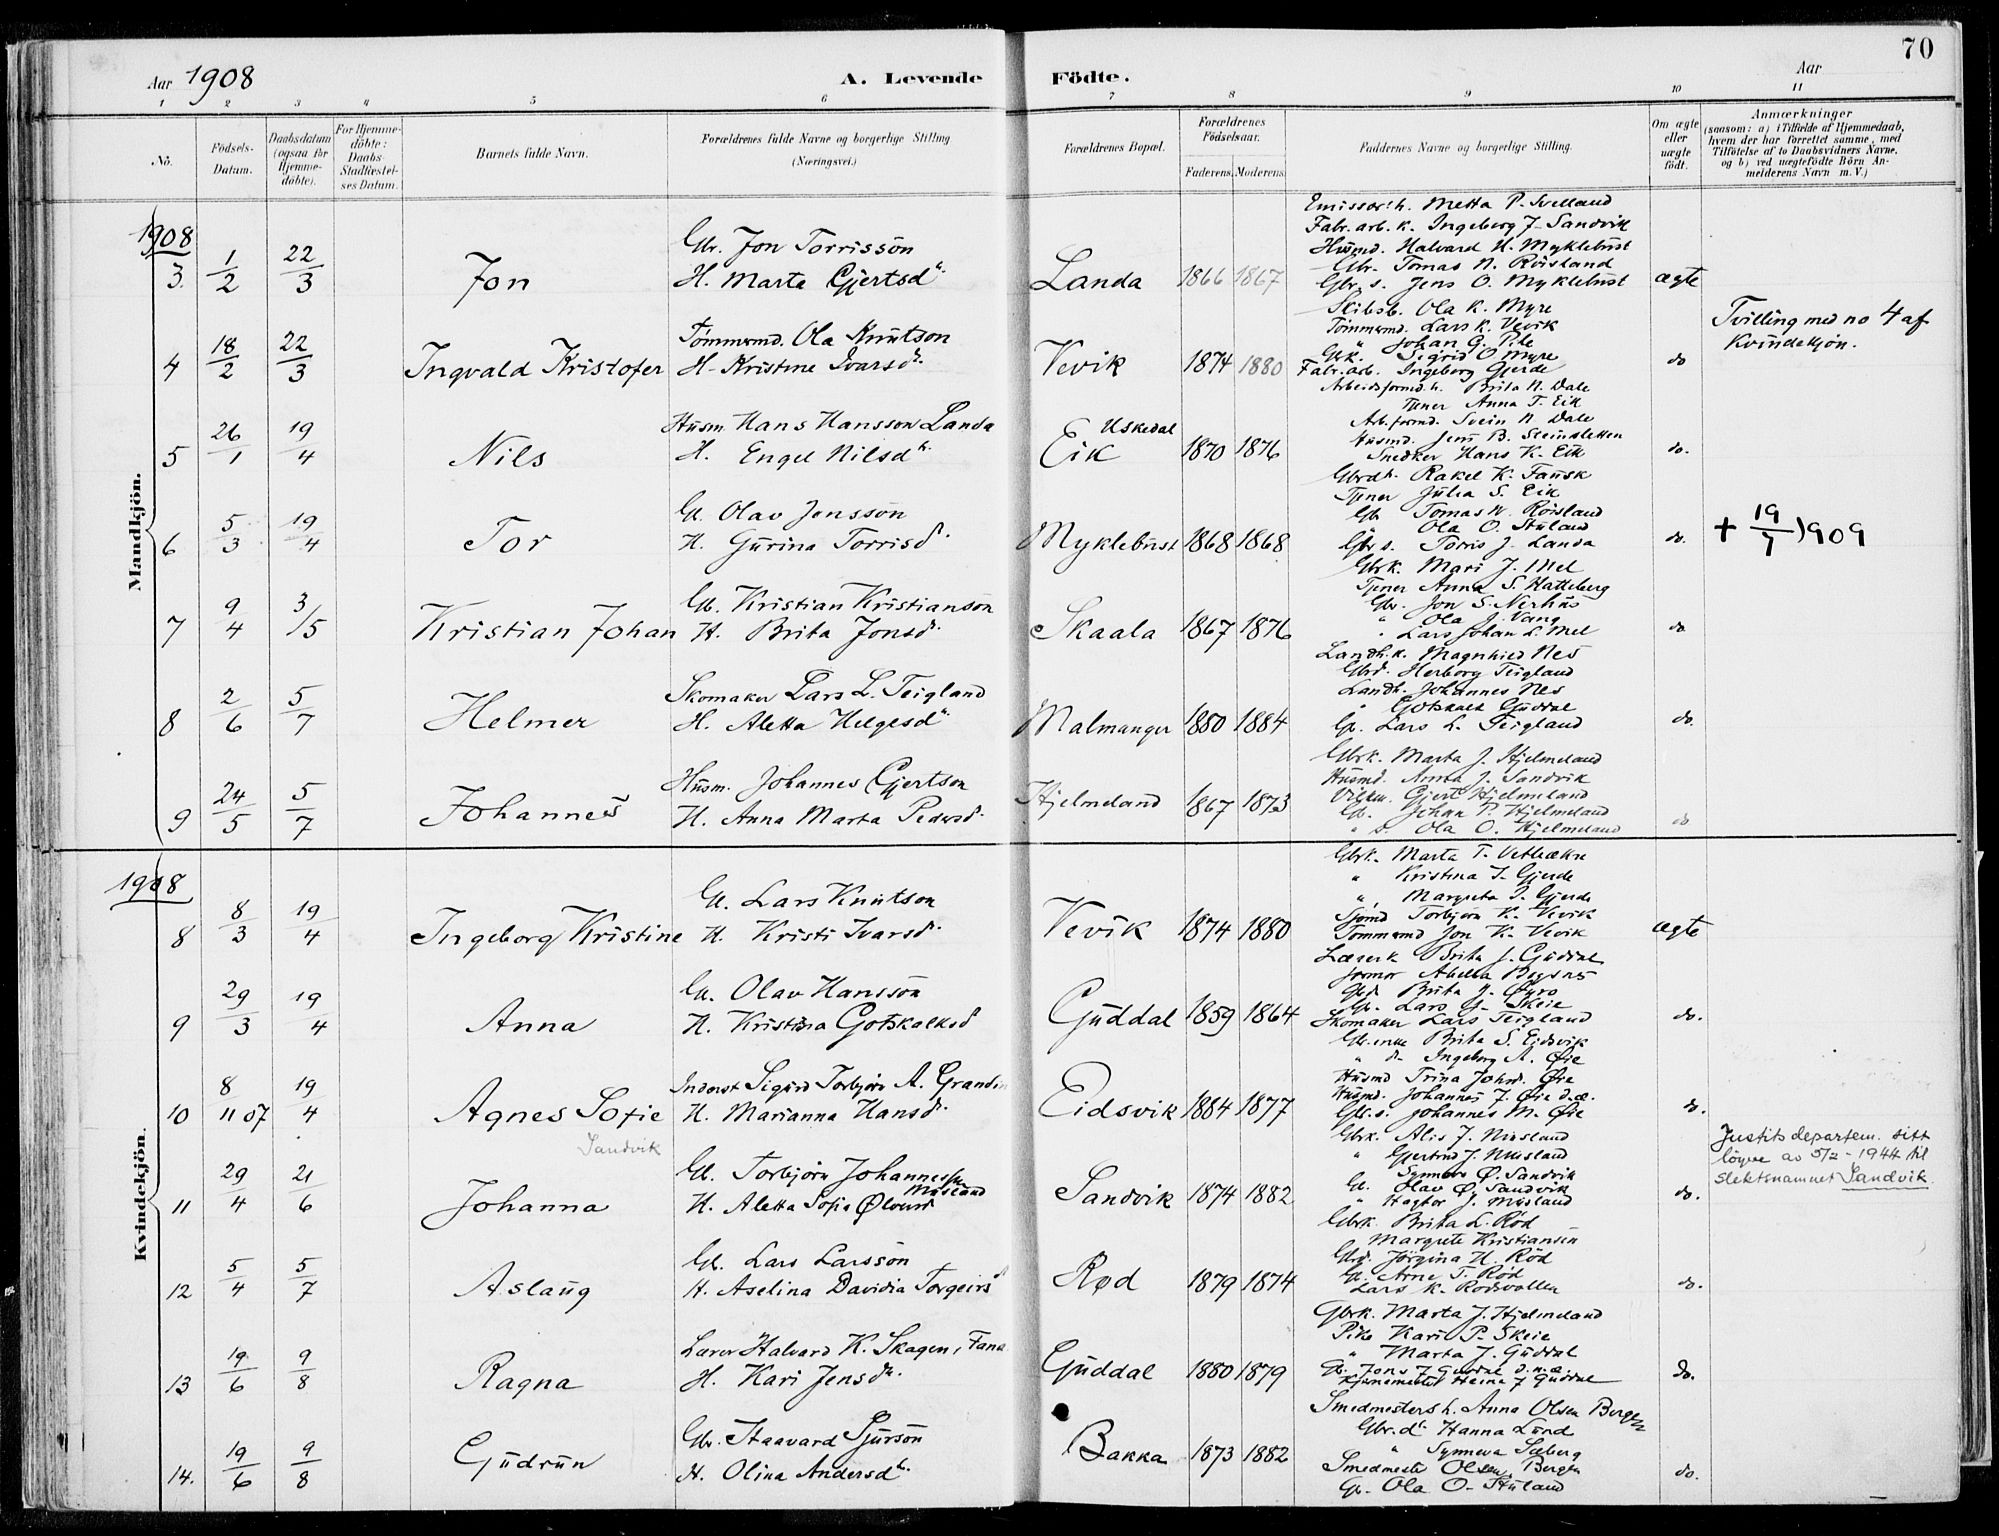 70
Aar 1908
A. Levende Födte.
Aar
1 2 3 4 5 6 7 8 9 10 11
No.
Födsels-Datum.
Daabsdatum (ogsaa for Hjemme-döbte).
For Hjemme-döbte: Daabs-Stadfæstel-ses Datum.
Barnets fulde Navn.
Forældrenes fulde Navne og borgerlige Stilling (Næringsvei.)
Forældrenes Bopæl.
Forældrenes Födselsaar.
Faderens. Moderens.
Faddernes Navne og borgerlige Stilling.
Om ægte eller uægte födt.
Anmærkninger (saasom: a) i Tilfælde af Hjemmedaab, hvem der har forrettet samme, med Tilföielse af to Daabsvidners Navne, og b) ved uægtefödte Börn An-melderens Navn m. V.)
Mandkjön.
1908
3. 1/2 22/3 Jon
Gbr. Jon Torrissön
H. Marta Gjertsdr.
Landa 1866 1867
Emissærh. Metta P. Svelland
Fabr.arb. k. Ingeborg J. Sandvik
Husmd. Halvard H. Myklebust
Gbr. Tomas N. Röisland
Gbr. s. Jens O. Myklebust
ægte
4 18/2 22/3 Ingvald Kristofer
Tømmermd. Ola Knutson
H. Kristine Ivarsdr.
Vevik 1874 1880
Skibsb. Ola K. Myre
Tömmermd. Lars K. Vevik
" Johan G. Pile
Gbk. Sigrid O Myre
Fabr. arb. Ingeborg Gjerde
do
Tvilling med no 4 af
Kvindekjön.
5 26/1 19/4 Nils
Husm. Hans Hansson Landa
H. Engel Nilsdr.
Eik Uskedal 1870 1876
Arbeidsformd. h. Brita N. Dale
Tjener Anna T. Eik
Arb.formd. Svein N. Dale
Husmd. Jens B. Steinsletten
Snedker Hans K. Eik
do.
6 5/3 19/4 Tor
Gb. Olav Jonssön
H. Gurina Torrisd.
Myklebust 1868 1868
Gbrdh. Rakel K. Fausk
Tjener Julia S. Eik
Gb. Tomas N. Röisland
" Ola O. Huland
Gbr. s. Torris J. Landa
do.
+ 19/7 1909
7 9/4 3/5 Kristian Johan
Gb. Kristian Kristiansön
H. Brita Jonsd.
Skaala 1867 1876
Gbrk. Mari J. Mel
Tjener Anna S. Hatteberg
Gbr. Jon S. Nerhus
" Ola J. Vang
" Lars Johan L. Mel
do
8 2/6 5/7 Helmer
Skomaker Lars L. Teigland
H. Aletta Helgesdr.
Malmanger 1880 1884
Landh. k. Magnhild Nes
Gbrd. Herborg Teigland
Landh. Johannes Nes
" Gotskalk Guddal
Gb. Lars L. Teigland
do.
9 24/5 5/7 Johannes
Husm. Johannes Gjertson
H. Anna Marta Pedersd.
Hjelmeland 1867 1873
Gbrk. Marta J. Hjelmeland
Husmd. Anna J. Sandvik
Gjert Hjelmeland
Gb. Johan P. Hjelmeland
" s. Ola O. Hjelmeland
do
Kvindekjön.
1908
8 8/3 19/4 Ingeborg Kristine
Gb. Lars Knutson
H. Kristi Ivarsd.
Vevik 1874 1880
Gbrk. Marta T. Vetleækre
" Kristina J. Gjerde
" Margreta J. Gjerde
Sjömd Torbjörn K. Vevik
Tömmermd Jon K. Vevik
ægte
9 29/3 19/4 Anna
Gb. Olav Hanssön
H. Kristina Gotskalksd
Guddal 1859 1864
Lærerk Brita J. Guddal
Jormor
Gbd. Brita J. Øyro
Gb. Lars J. Skeie
Skomaker Lars Teigland
do.
10 8/11 07 19/4 Agnes Sofie
Inderst Sigurd Torbjörn A. Grandin
H. Marianna Hansdr.
Eidsvik 1884 1877
Gbr. enke Brita S. Eidsvik
" d. Ingeborg A. Øie
Husmd Trina Johsd. Øie
Husmd. Johannes J. Øie d.æ.
Gbr. s. Johannes M. Øie
do.
11 29/4 21/6 Johanna Sandvik
Gb. Torbjörn Johannessen Musland
H. Aletta Sofia Ølversd
Sandvik 1874 1882
Gbrk. Alis J. Musland
" Gjertrud J. Musland
Synneva Ø. Sandvik
Gb. Olav Ø. Sandvik
" Hagtor J. Musland
do.
Justitsdepartem. sitt
löyve av 5/2 - 1944 til
slektsnamnet Sandvik.
12 5/4 5/7 Aslaug
Gb. Lars Larssön
H. Aselina Davidia Torgeirsd
Rød 1879 1874
Gbrk. Brita L. Rød
Margrete Kristiansen
Gbd. Jörgina H. Rød
Gb. Arne T. Rød
Lars K. Rødsvollen
do.
13 19/6 9/8 Ragna
Lærer Halvard K. Skagen, Fana
H. Kari Jensdr.
Guddal 1880 1879
Gbrk. Marta J. Hjelmeland
Pike Kari P. Skeie
" Marta J. Guddal
Gb. Jens J Guddal d.æ.
J Guddal
do.
14. 19/6 9/8 Gudrun
Gbr. Haavard Sjurson
H. Olina Andersdr.
Bakka 1873 1882
Smedmesters h. Anna Olsen Bergen
Gbr. dr. Hanna Lund
" Synneva Sæberg
Smedmester Olsen, Bergen
Gb. Ola O. Huland
do.